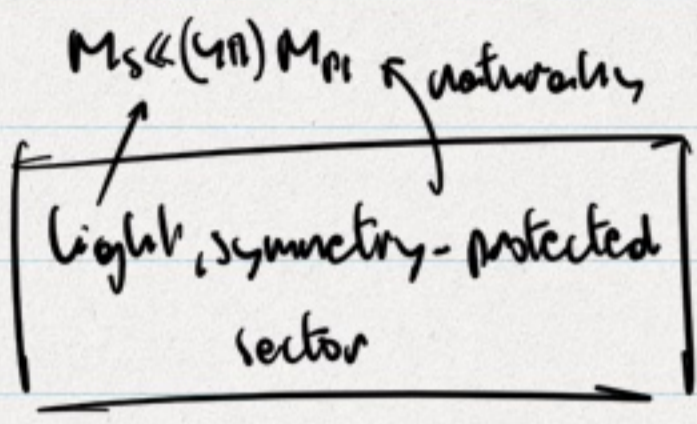 Ms≪(4π) Mpl naturally
light, symmetry-protected
sector